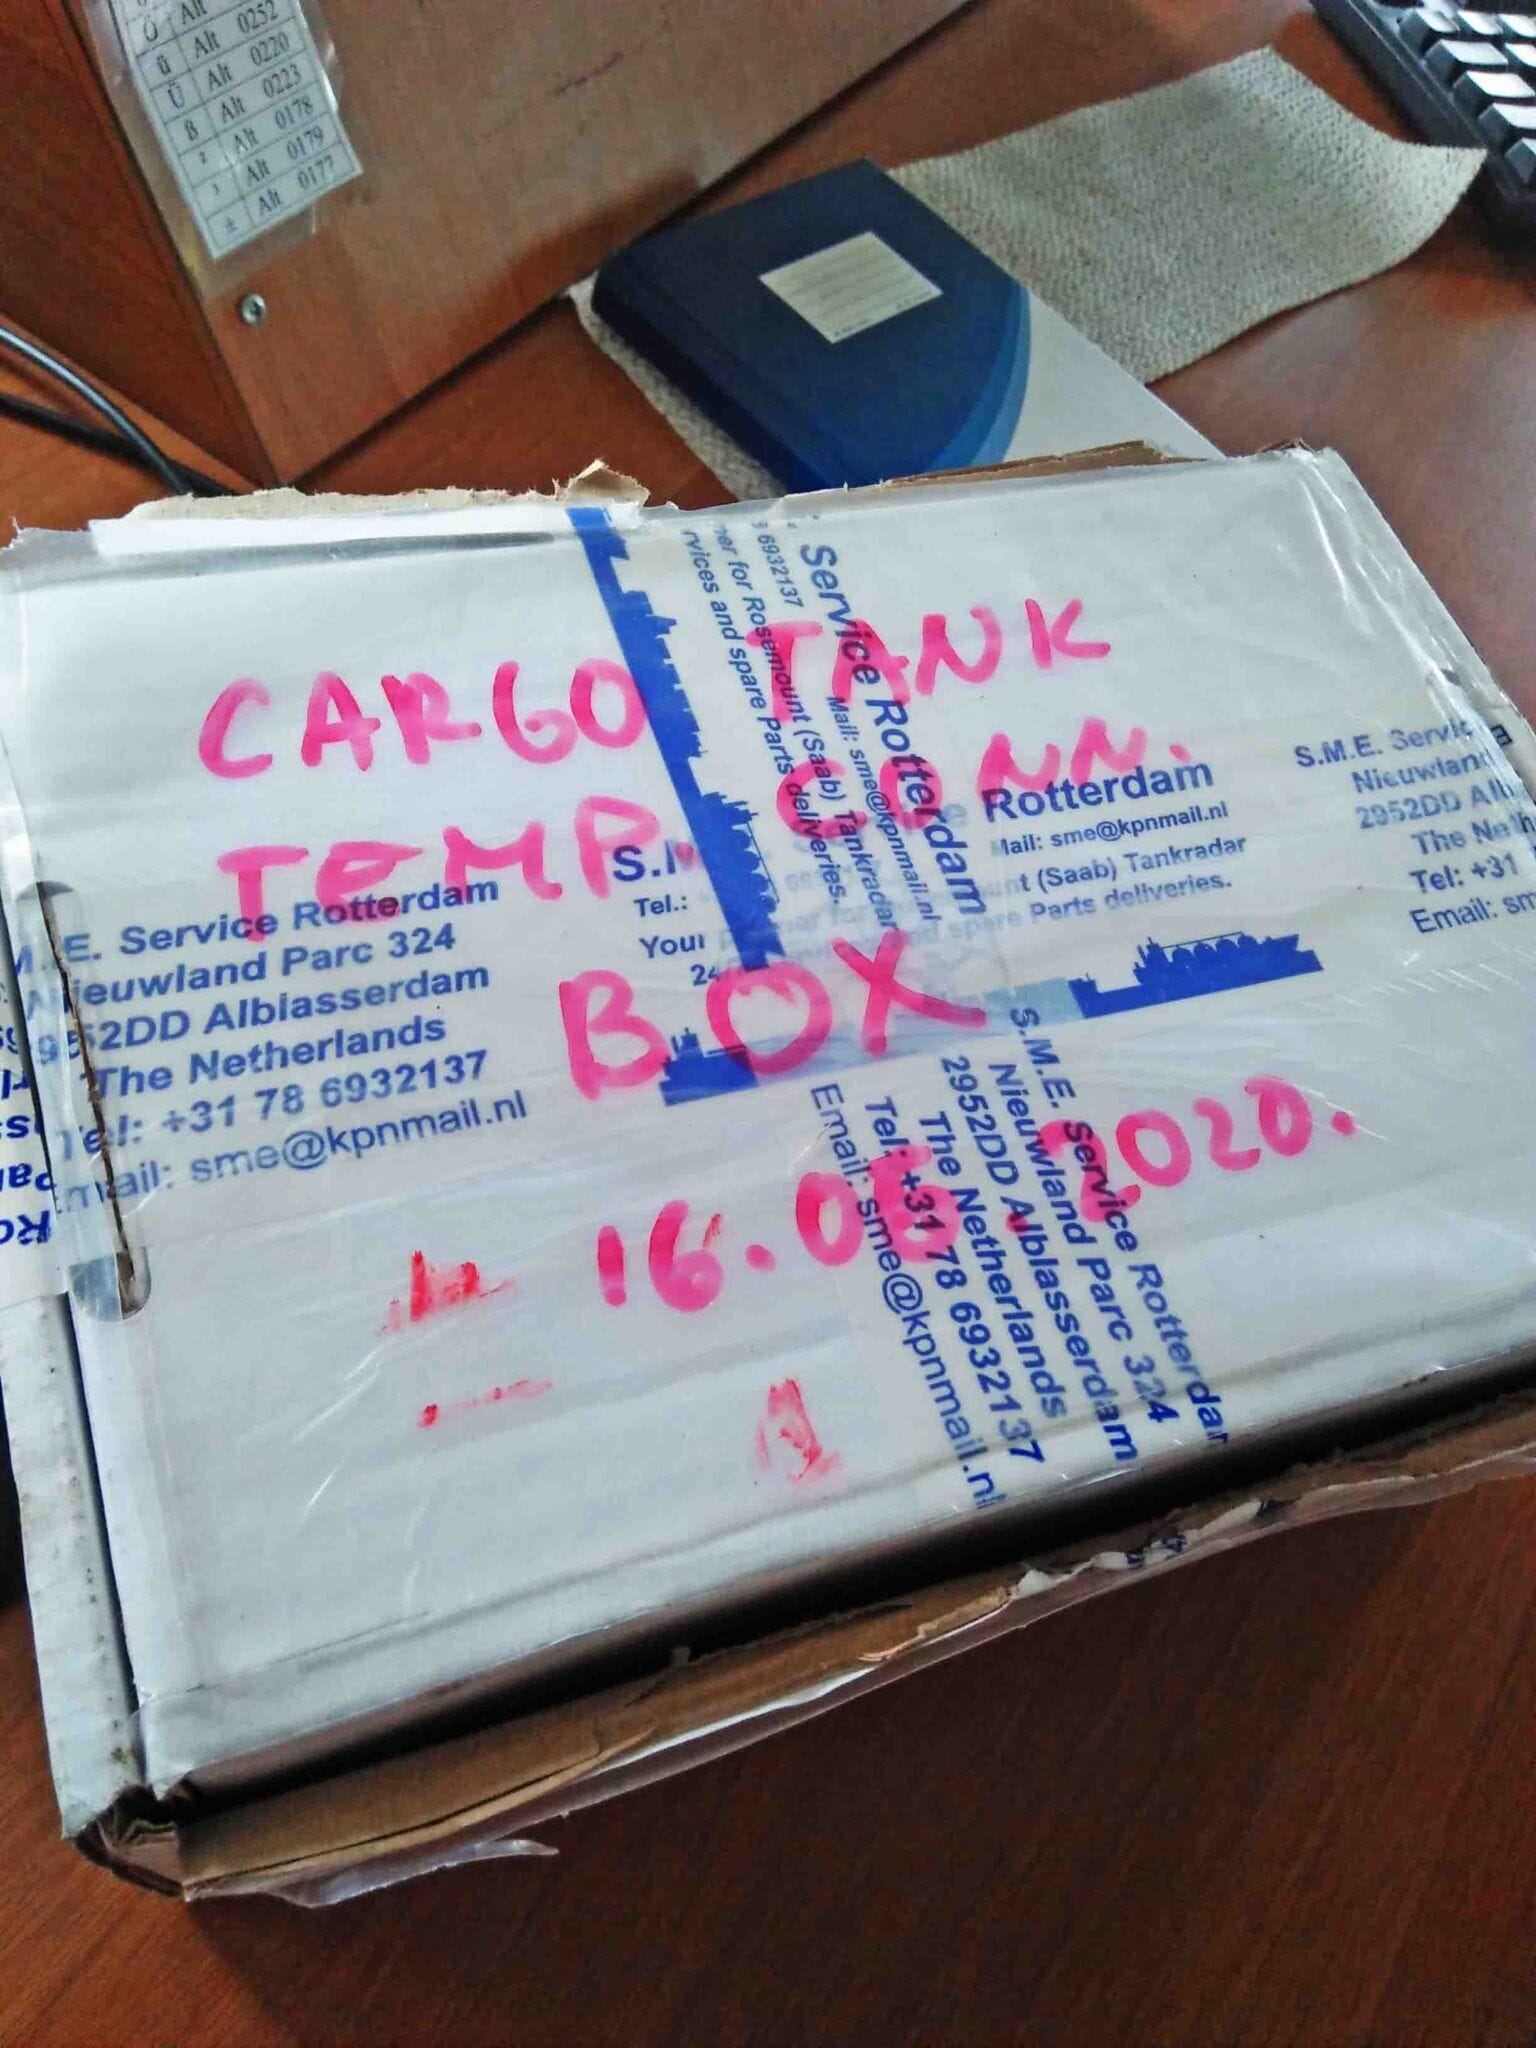 Ö Alt
ü Alt 0252
Ü Alt 0220
ß Alt 0223
² Alt 0178
³ Alt 0179
± Alt 0177
CARGO TANK
TEMP. CONN.
BOX
16.06.2020.
Service Rotterdam
Mail: sme@kpnmail.nl
6932137
for Rosemount (Saab) Tankradar
and spare Parts deliveries.
Rotterdam
Mail: sme@kpnmail.nl
(Saab) Tankradar
spare Parts deliveries.
Tel.:
Your
S.M.E.
Nieuwland
2952DD
The
Tel: +31
Email:
.E. Service Rotterdam
Nieuwland Parc 324
2952DD Alblasserdam
The Netherlands
Tel: +31 78 6932137
Email: sme@kpnmail.nl
S.M.E. Service Rotterdam
Nieuwland Parc 324
2952DD Alblasserdam
The Netherlands
Tel: +31 78 6932137
Email: sme@kpnmail.nl